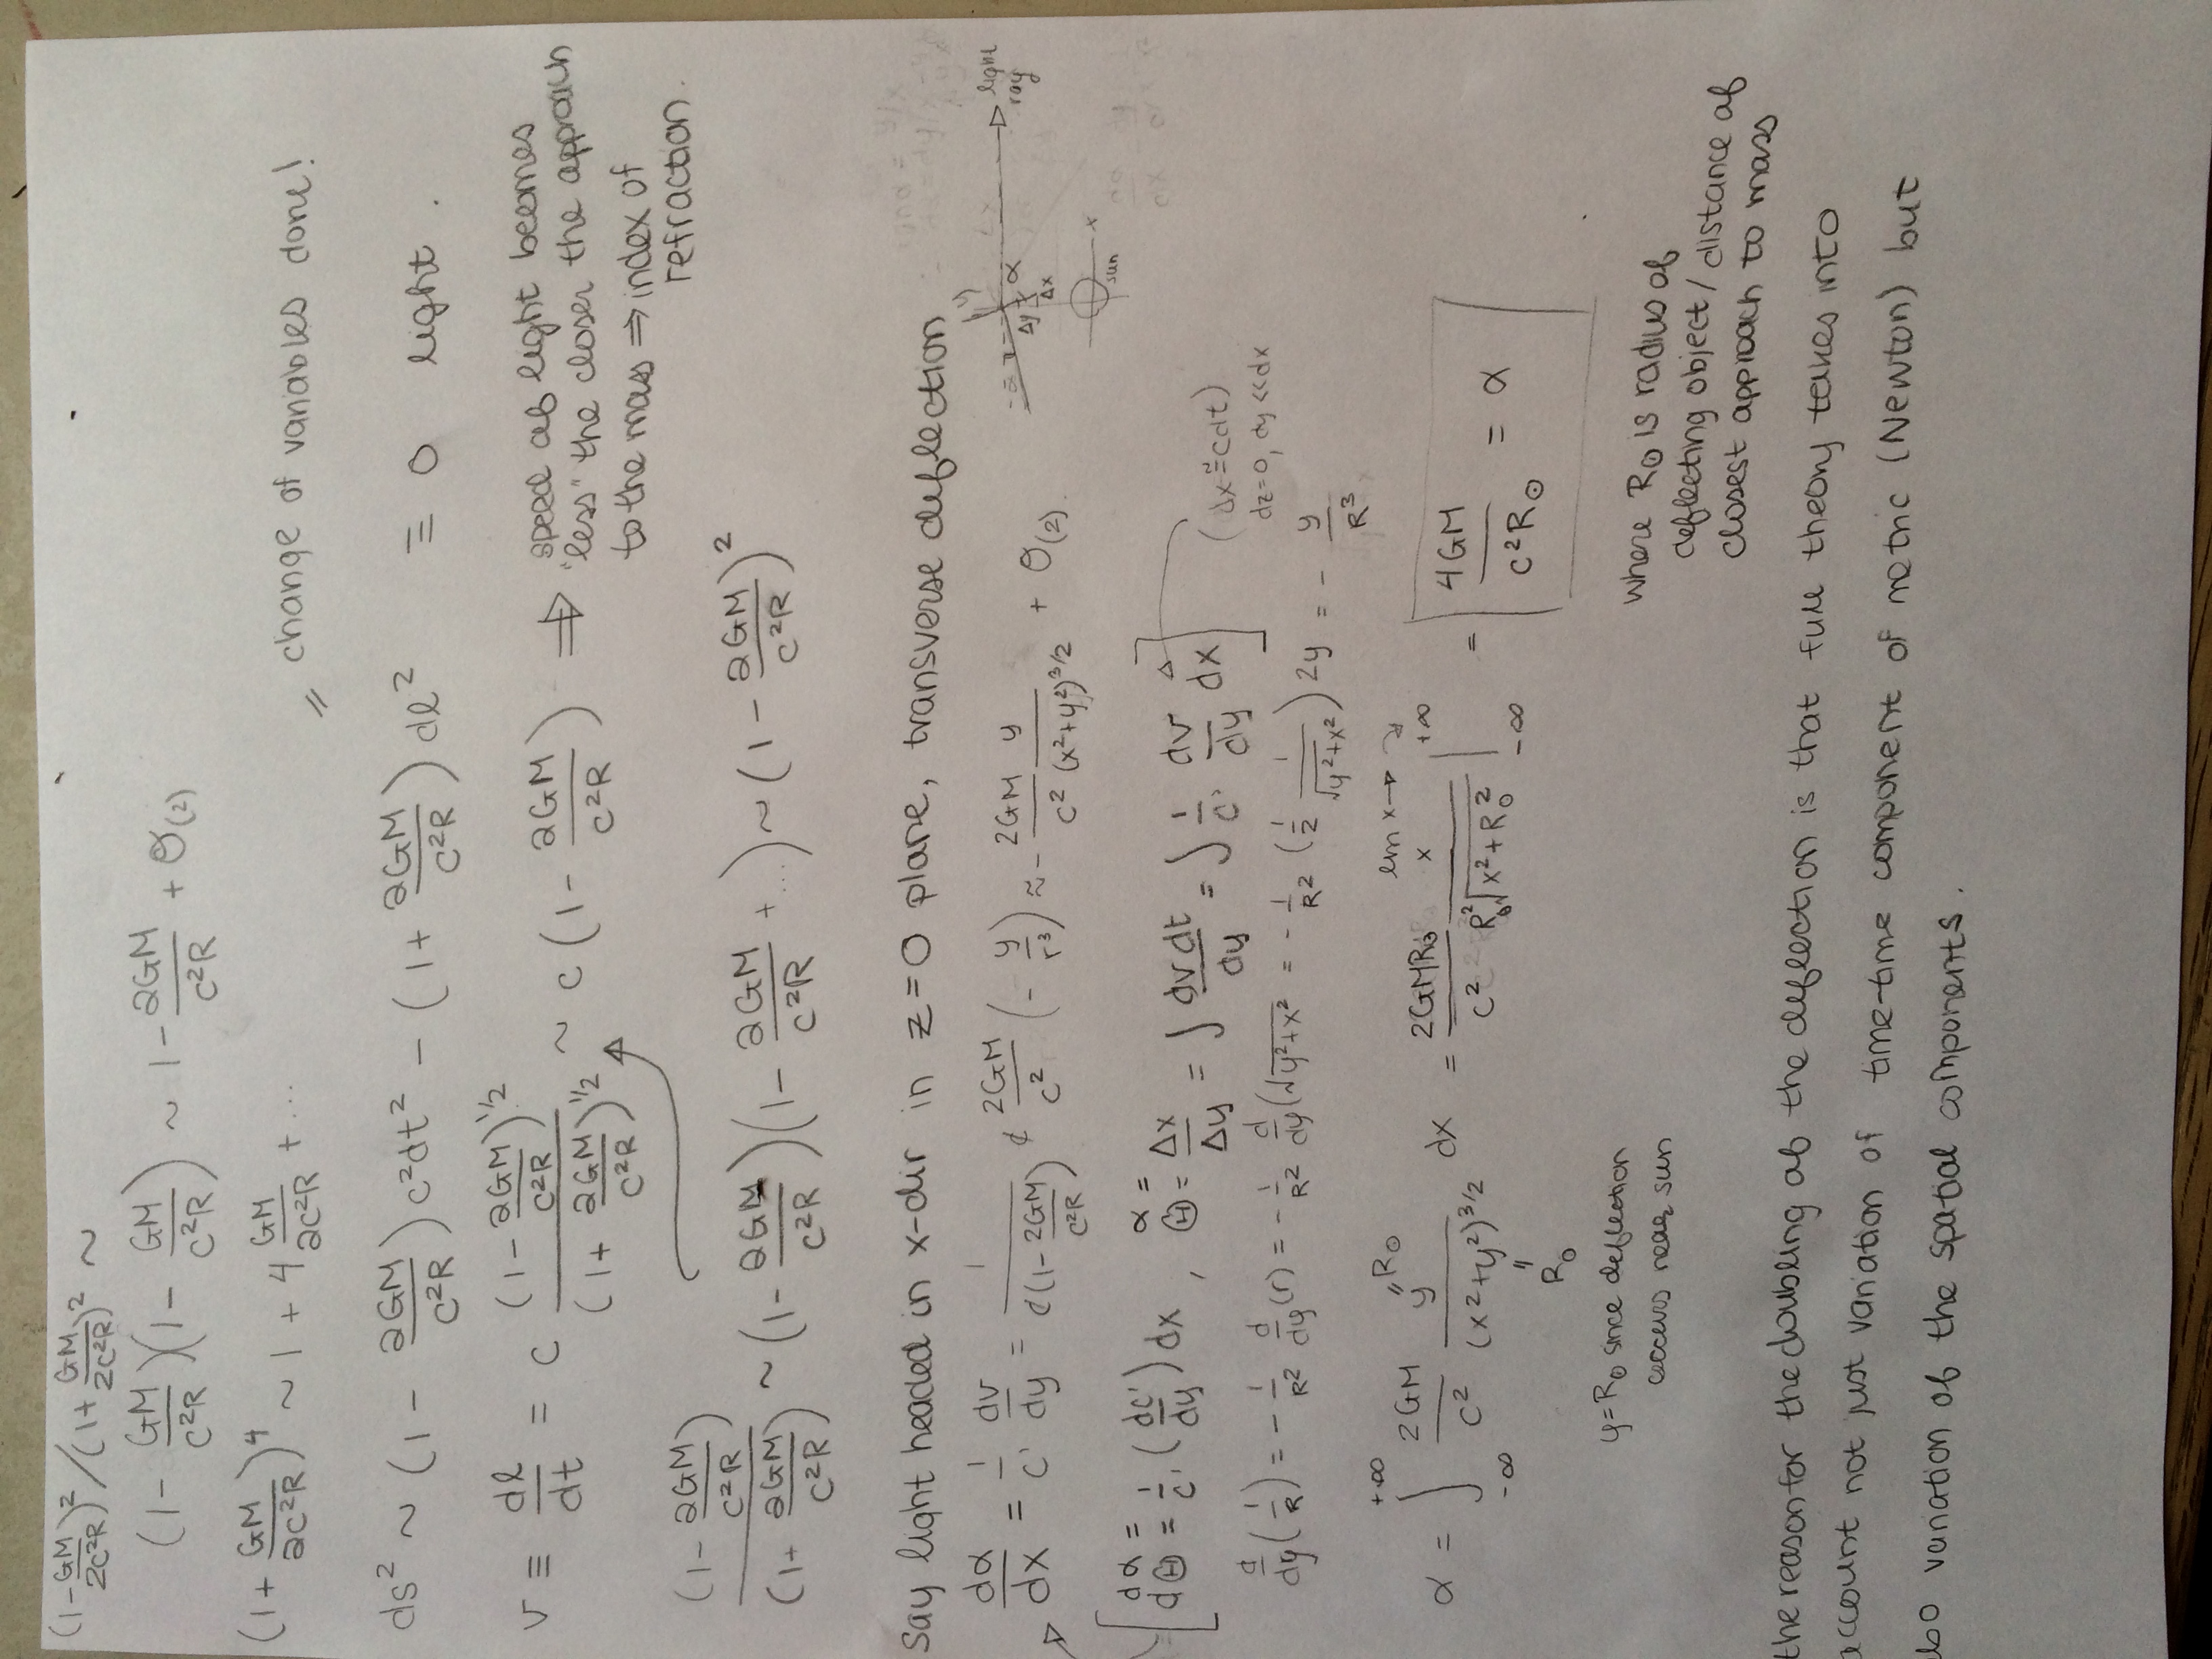 (1 - GM/2c²R)² / (1 + GM/2c²R)² ~
(1 - GM/c²R)(1 - GM/c²R) ~ 1 - 2GM/c²R + O(2)
(1 + GM/2c²R)⁴ ~ 1 + 4 GM/2c²R + ...
= change of variables done!
ds² ~ (1 - 2GM/c²R) c²dt² - (1 + 2GM/c²R) dl² ≡ 0 light.
v ≡ dl/dt = c (1 - 2GM/c²R)^1/2 / (1 + 2GM/c²R)^1/2 ~ c (1 - 2GM/c²R) ⇒ speed of light becomes
"less" the closer the approach
to the mass ⇒ index of
refraction.
(1 - 2GM/c²R) / (1 + 2GM/c²R) ~ (1 - 2GM/c²R)(1 - 2GM/c²R + ...) ~ (1 - 2GM/c²R)²
Say light headed in x-dir in z=0 plane, transverse deflection
dα/dx = 1/c' dv/dy = 1/(c(1 - 2GM/c²R)) c 2GM/c² (- y/r³) ≈ - 2GM/c² y/(x²+y²)^3/2 + O(2)
y
light
ray
α
Δy
Δx
x
sun
[ dα =
dΘ = 1/c' (dc'/dy) dx , α =
Θ = Δx/Δy = ∫ dv dt/dy = ∫ 1/c' dv/dy dx ]
(dx ≅ cdt)
dz=0, dy << dx
d/dy (1/R) = - 1/R² d/dy (r) = - 1/R² d/dy (√y²+x² = - 1/R² (1/2 1/√y²+x²) 2y = - y/R³
α = ∫ +∞ -∞ 2GM/c² y/(x²+y²)^3/2 dx = 2GMR⊙/c² x/(R⊙²√x²+R⊙²) | +∞ -∞ = 4GM/c²R⊙ = α
"R⊙
lim x→
"
R⊙
y=R⊙ since deflection
occurs near sun
where R⊙ is radius of
deflecting object / distance of
closest approach to mass
the reason for the doubling of the deflection is that full theory takes into
account not just variation of time-time component of metric (Newton) but
also variation of the spatial components.